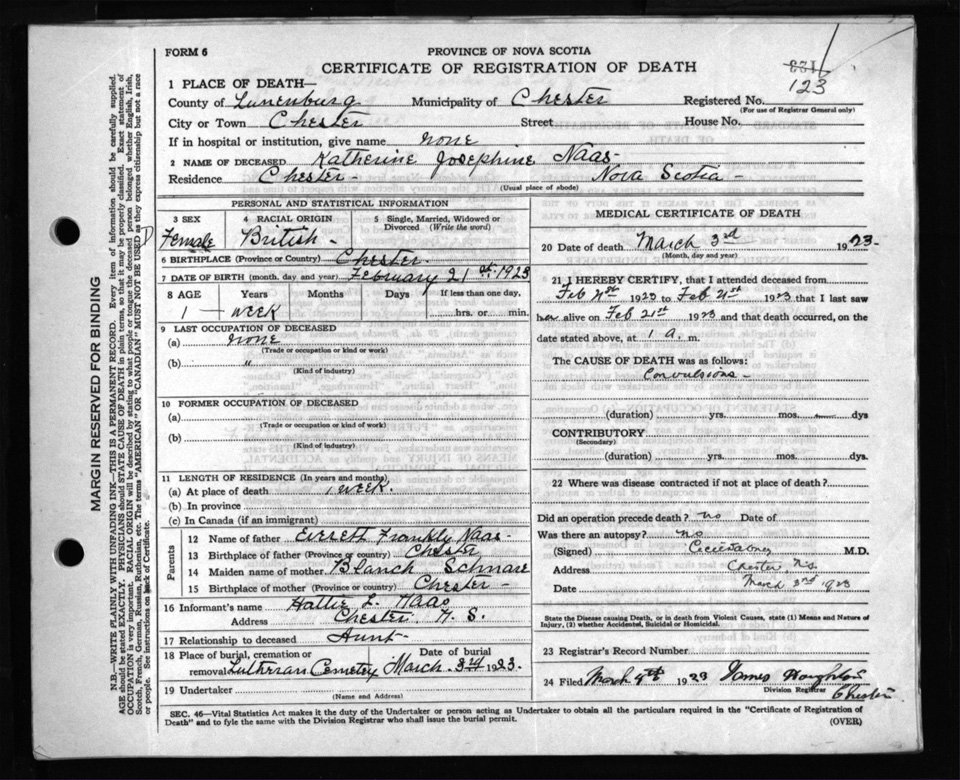 FORM 6
PROVINCE OF NOVA SCOTIA
CERTIFICATE OF REGISTRATION OF DEATH
123
1 PLACE OF DEATH—
County of Lunenburg Municipality of Chester Registered No.
(For use of Registrar General only)
City or Town Chester Street House No.
If in hospital or institution, give name none
2 NAME OF DECEASED Katherine Josephine Naas-
Residence Chester - Nova Scotia -
(Usual place of abode)
PERSONAL AND STATISTICAL INFORMATION
3 SEX 4 RACIAL ORIGIN 5 Single, Married, Widowed or Divorced (Write the word)
Female British -
6 BIRTHPLACE (Province or Country) Chester -
7 DATE OF BIRTH (month, day and year) February 21st 1923
8 AGE Years Months Days If less than one day,
1 - week ....hrs. or .... min.
9 LAST OCCUPATION OF DECEASED
(a) none
(Trade or occupation or kind or work)
(b) "
(Kind of industry)
10 FORMER OCCUPATION OF DECEASED
(a)
(Trade or occupation or kind of work)
(b)
(Kind of industry)
11 LENGTH OF RESIDENCE (In years and months)
(a) At place of death 1 week.
(b) In province
(c) In Canada (if an immigrant)
Parents
12 Name of father Evereth Frankly Naas-
13 Birthplace of father (Province or country) Chester
14 Maiden name of mother Blanch Schnare
15 Birthplace of mother (Province or country) Chester -
16 Informant's name Hattie L. Naas
Address Chester N. S.
17 Relationship to deceased Aunt -
18 Place of burial, cremation or removal Lutheran Cemetry Date of burial March 3rd 1923.
19 Undertaker
(Name and Address)
MEDICAL CERTIFICATE OF DEATH
20 Date of death March 3rd 1923-
(Month, day and year)
21 I HEREBY CERTIFY, that I attended deceased from
Feb 21st 1923 to Feb 21st 1923 that I last saw
her alive on Feb 21st 1923 and that death occurred, on the
date stated above, at 1 a. m.
The CAUSE OF DEATH was as follows:
Convulsions -
(duration) yrs. mos. dys
CONTRIBUTORY
(Secondary)
(duration) yrs. mos. dys.
22 Where was disease contracted if not at place of death?
Did an operation precede death? no Date of
Was there an autopsy? no
(Signed) M.D.
Address Chester, N.S.
Date March 3rd 1923
State the Disease causing Death, or in death from Violent Causes, state (1) Means and Nature of Injury, (2) whether Accidental, Suicidal or Homicidal.
23 Registrar's Record Number
24 Filed March 4th 1923 James Houghton
Division Registrar
Chester
SEC. 46—Vital Statistics Act makes it the duty of the Undertaker or person acting as Undertaker to obtain all the particulars required in the "Certificate of Registration of
Death" and to fyle the same with the Division Registrar who shall issue the burial permit.
(OVER)
MARGIN RESERVED FOR BINDING
N.B.—WRITE PLAINLY WITH UNFADING INK—THIS IS A PERMANENT RECORD. Every item of information should be carefully supplied.
AGE should be stated EXACTLY. PHYSICIANS should STATE CAUSE OF DEATH in plain terms, so that it may be properly classified. Exact statement of
OCCUPATION is very important. RACIAL ORIGIN will be described by stating to what people or tongue the deceased person belonged, whether English, Irish,
Scotch, French, German, Russian, Ruthenian, etc. The terms "AMERICAN" OR "CANADIAN" MUST NOT BE USED as they express citizenship but not a race
or people. See instructions on back of Certificate.